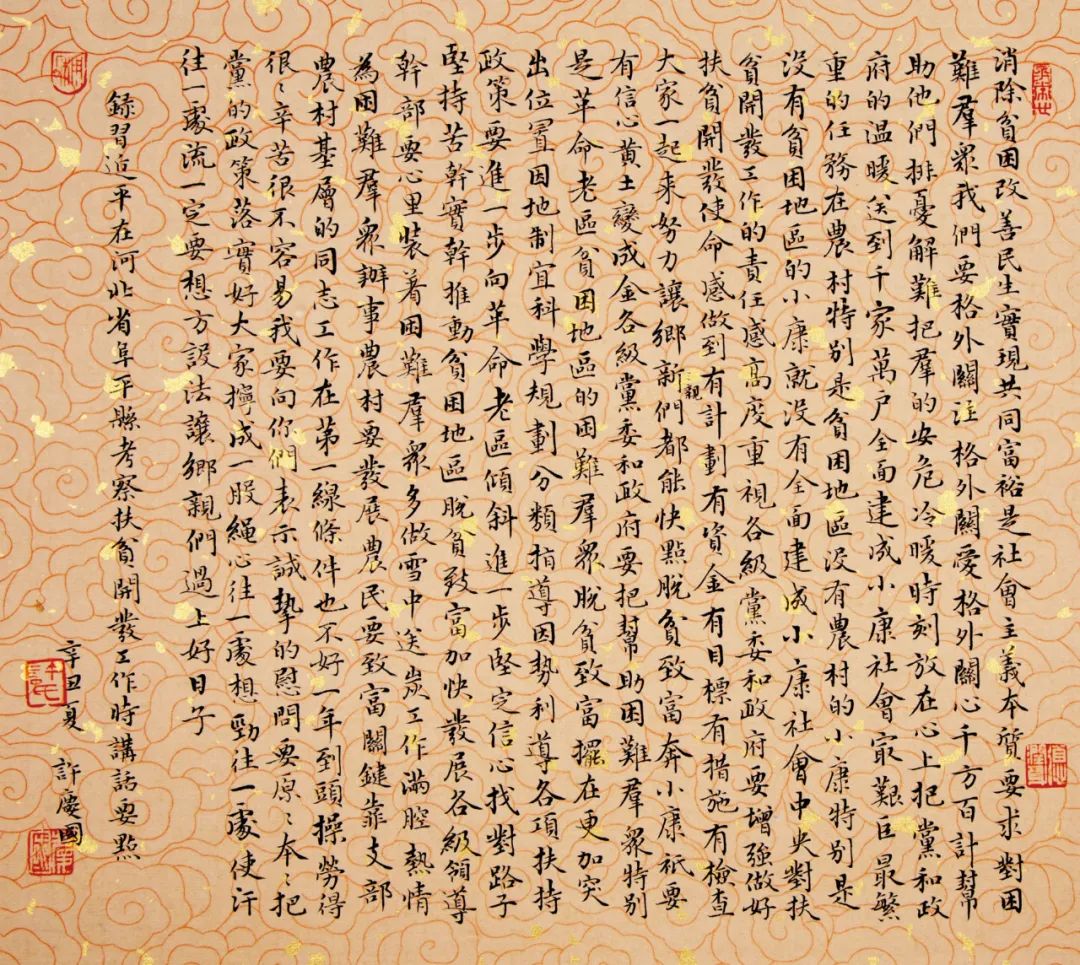 消除貧困改善民生實現共同富裕是社會主義本質要求對困
難羣眾我們要格外關注格外關愛格外關心千方百計幫
助他們排憂解難把羣的安危冷暖時刻放在心上把黨和政
府的溫暖送到千家萬户全面建成小康社會最艱巨最繁
重的任務在農村特別是貧困地區没有農村的小康特别是
没有貧困地區的小康就没有全面建成小康社會中央對扶
貧開發工作的責任感高度重視各級黨委和政府要增強做好
扶貧開發使命感做到有計劃有資金有目標有措施有檢查
大家一起來努力讓鄉新們都能快點脱貧致富奔小康衹要
親
有信心黄土變成金各級黨委和政府要把幫助困難羣眾特别
是革命老區貧困地區的困難羣眾脱貧致富擺在更加突
出位置因地制宜科學規劃分類指導因勢利導各項扶持
政策要進一步向革命老區傾斜進一步堅定信心找對路子
堅持苦幹實幹推動貧困地區脱貧致富加快發展各級領導
幹部要心里裝着困難羣眾多做雪中送炭工作滿腔熱情
為困難羣眾辦事農村要發展農民要致富關鍵靠支部
農村基層的同志工作在第一線條件也不好一年到頭操勞得
很〻辛苦很不容易我要向你們表示誠摯的慰問要原〻本〻把
黨的政策落實好大家擰成一股繩心往一處想勁往一處使汗
往一處流一定要想方設法讓鄉親們過上好日子
録習近平在河北省阜平縣考察扶貧開發工作時講話要點
辛丑夏 許慶國